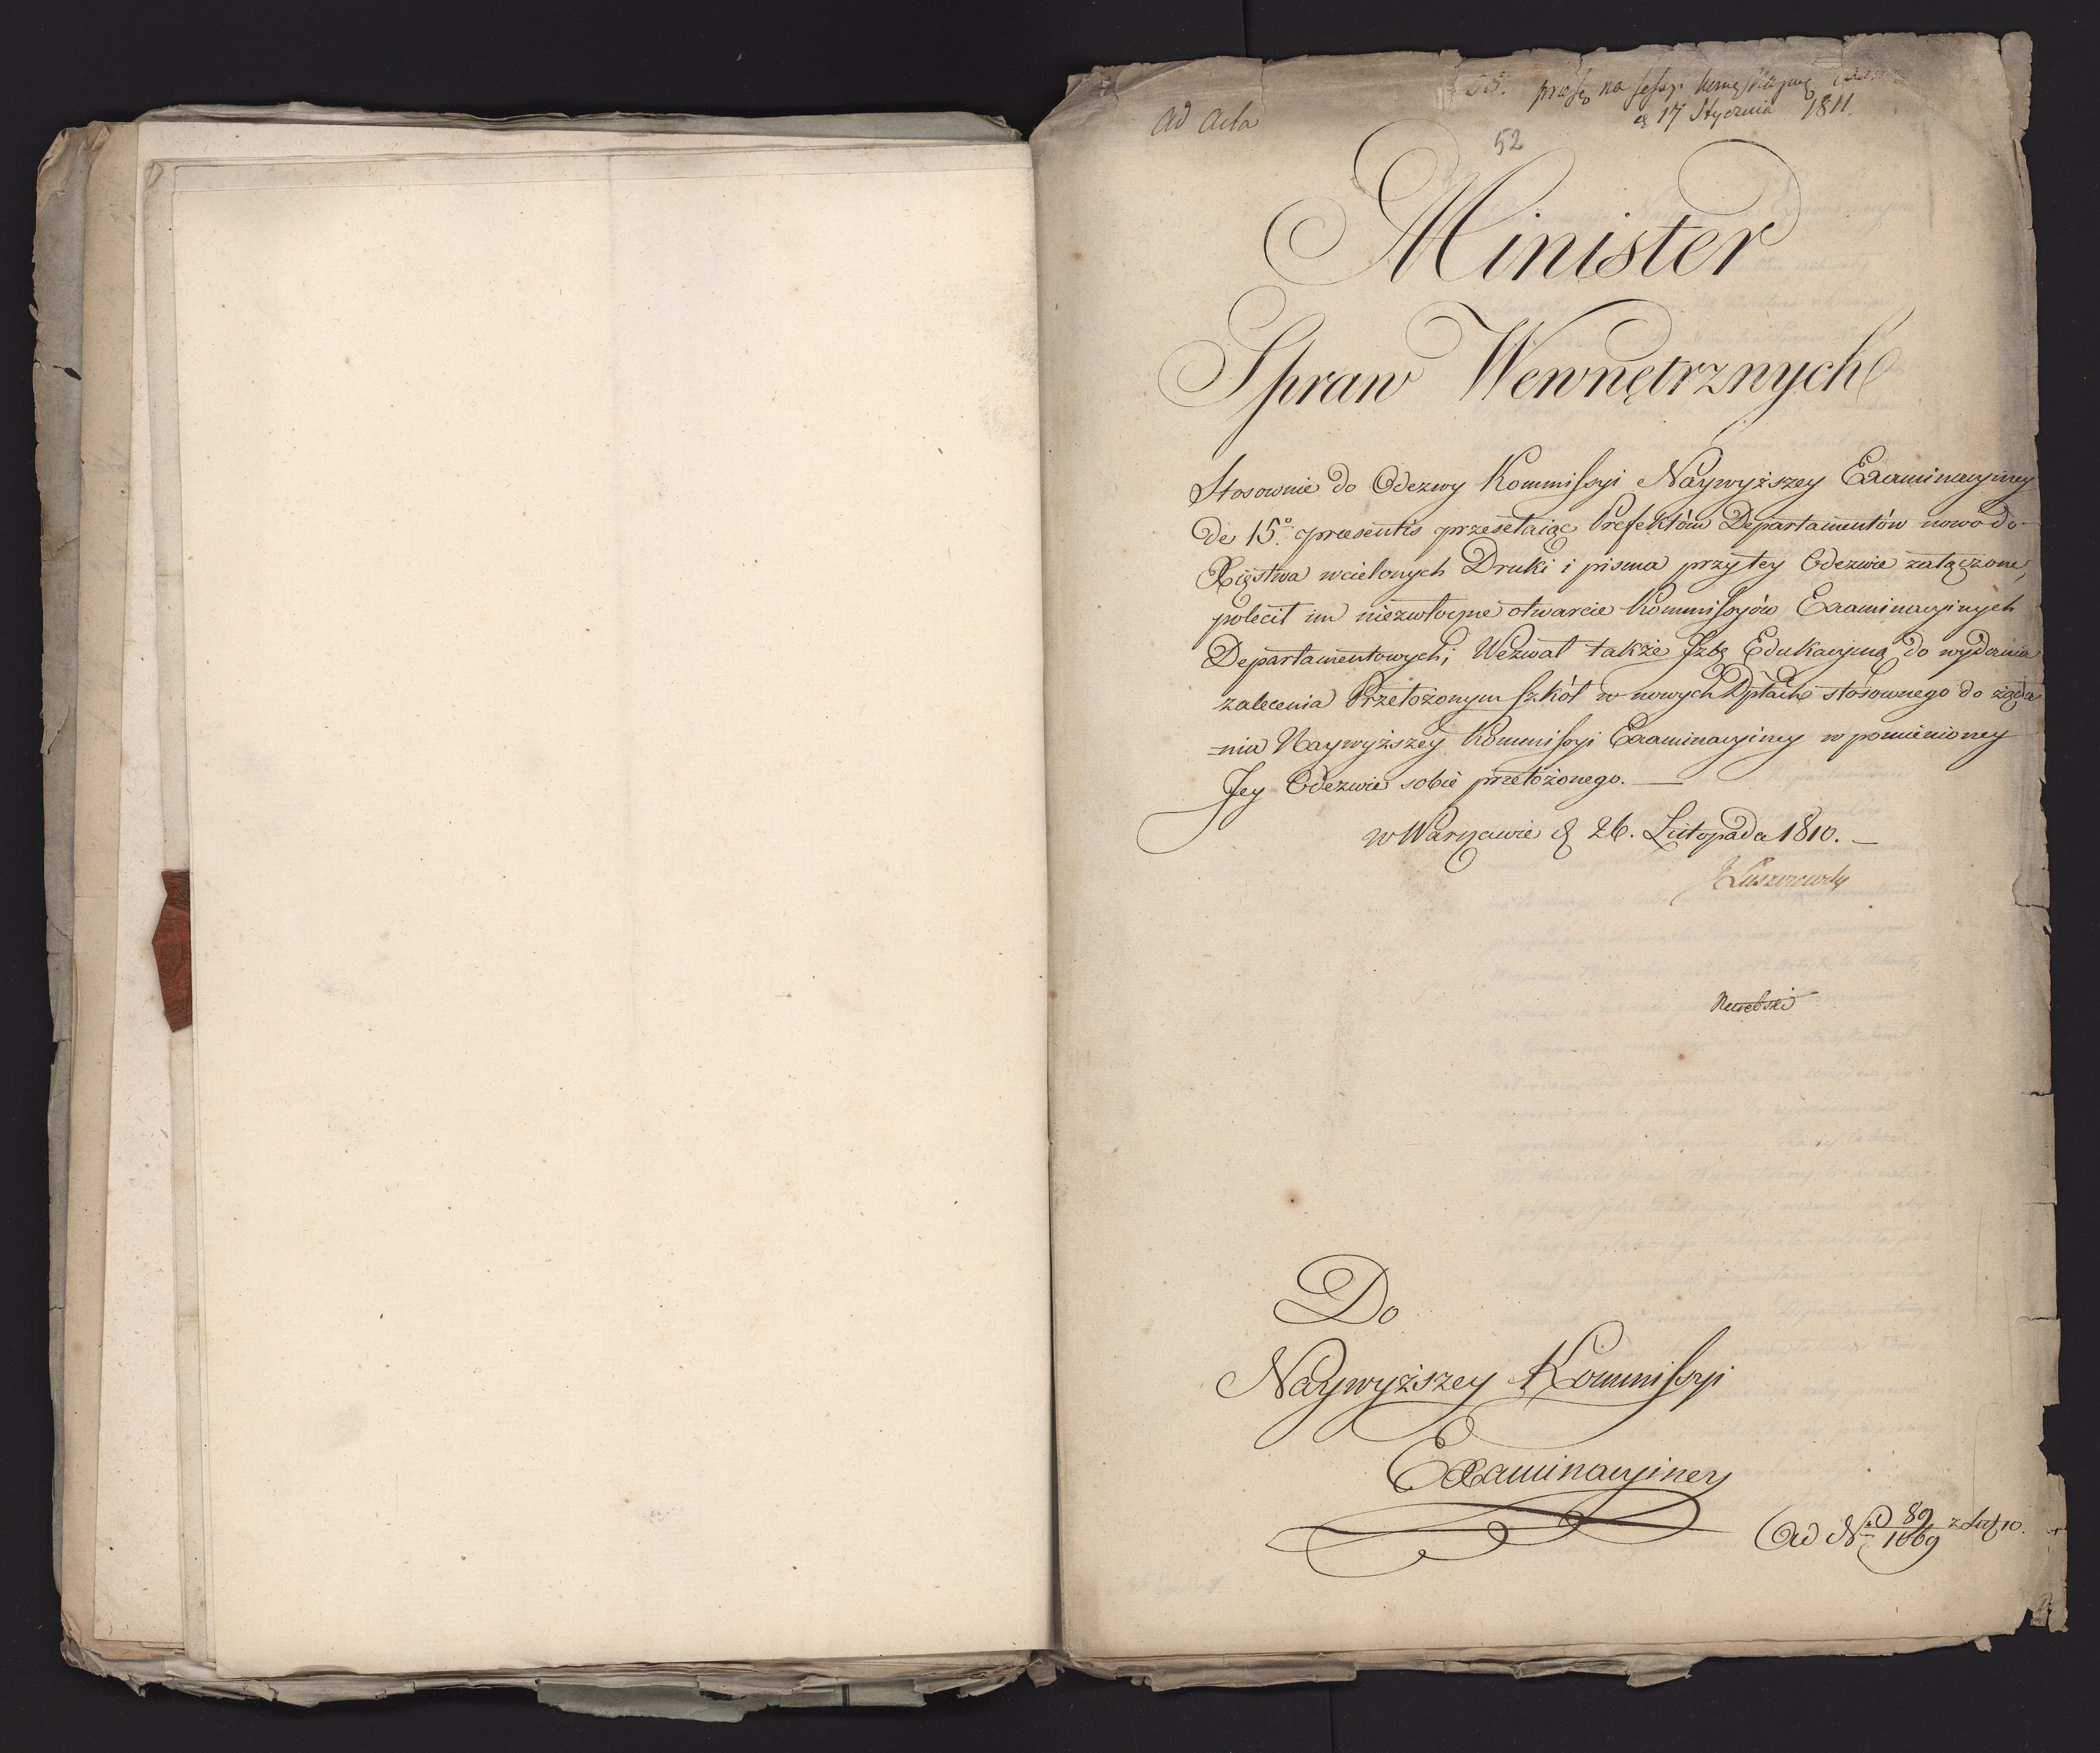 ad acta
17 Stycznia 1811.
52
Minister
Spraw Wewnętrznych
Stosownie do Odezwy Kommissyi Naywyższey Examinacyiney
de 15º praesentis przesełaiąc Prefektów Departamentów nowo do
Xięstwa wcielonych Druki i pisma przy tey Odezwie załączone,
polecił im niezwłoczne otwarcie Kommissyiów Examinacyinych
Departamentowych; Wezwał także Izbę Edukacyiną do wydania
zalecenia Przełożonym szkół w nowych Dptach stosownego do żąda-
-nia Naywyższey Kommissyi Examinacyiney w pomienioney
Jey Odezwie sobie przełożonego. —
w Warszawie d. 26. Listopada 1810. —
Do
Naywyższey Kommissyi
Examinacyiney
Ad N 89
1669